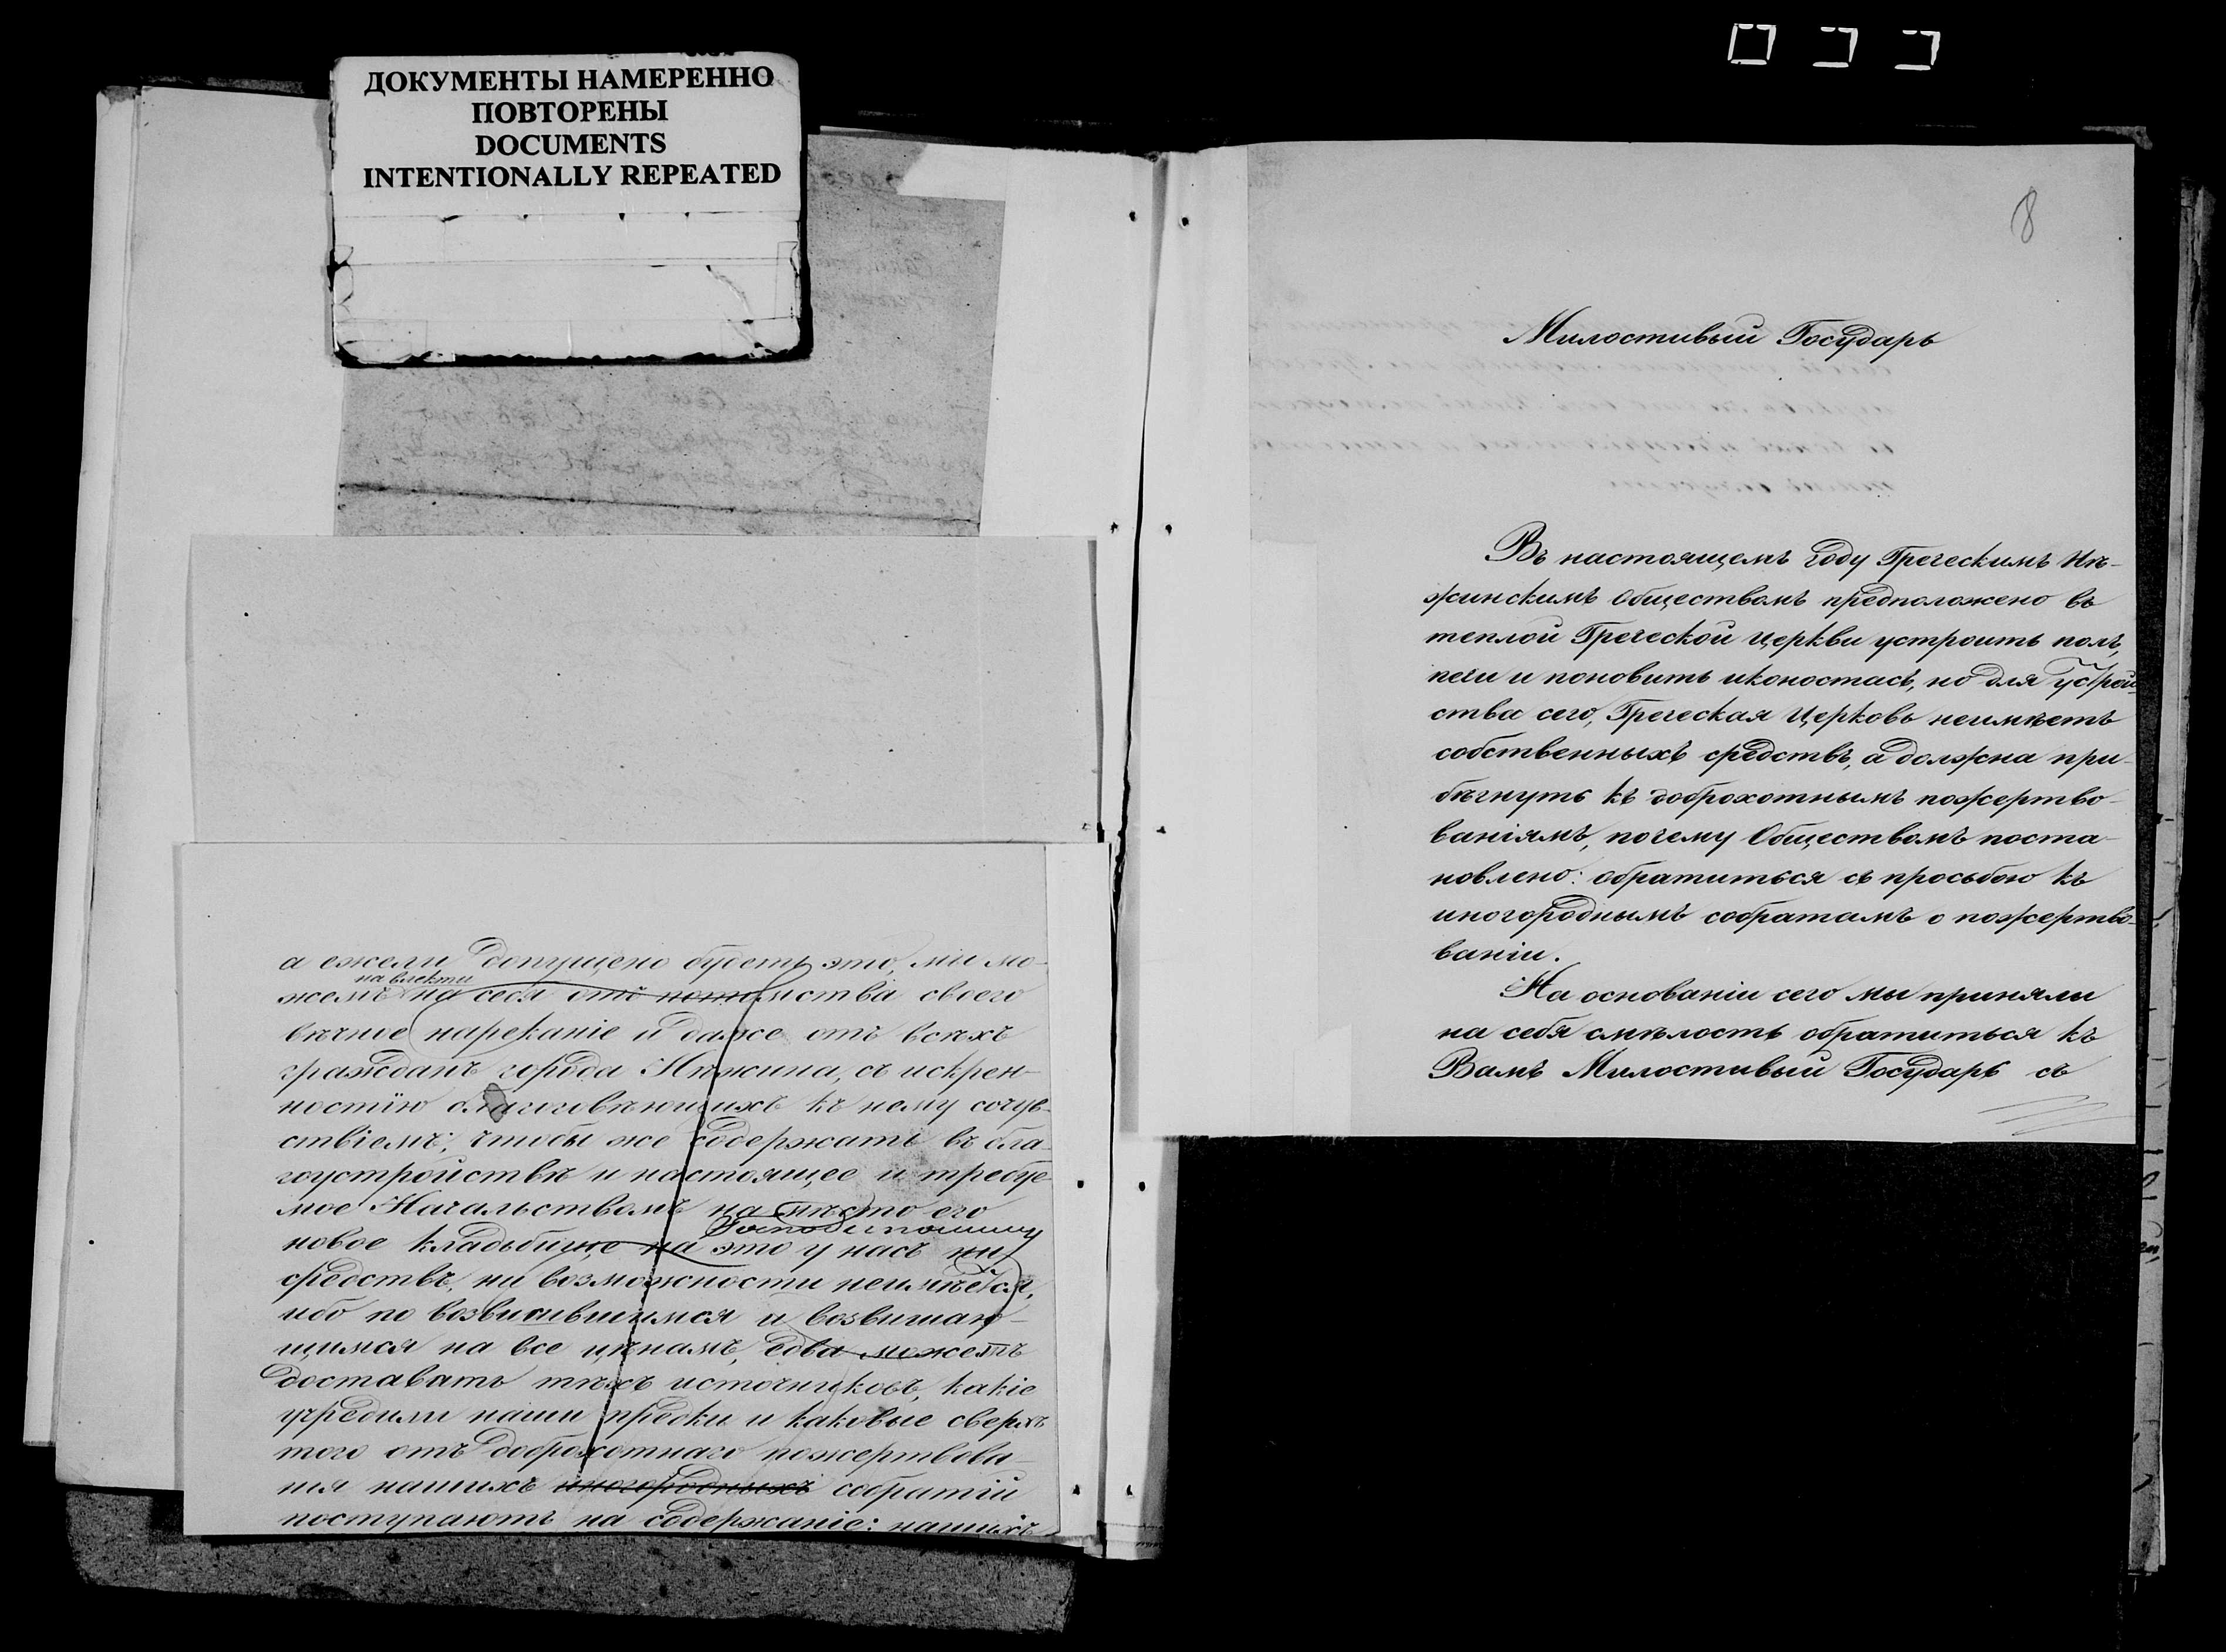 ДОКУМЕНТЫ НАМЕРЕННО
ПОВТОРЕНЫ
DOCUMENTS
INTENTIONALLY REPEATED
а ежели допущено будетъ это, мы мо-
навлекти
жемъ на себя отъ потомства своего
вѣчное нареканіе и даже отъ всѣхъ
гражданъ города Нѣжина, съ искрен-
ностію благоговѣющихъ къ нему сочув-
ствіемъ; чтобы же содержать въ бла-
гоустройствѣ и настоящее и требуе-
мое Начальствомъ на мѣсто его
новое кладбище на это у насъ ни
средствъ, ни возможности неимѣется,
ибо по возвисившимся и возвишаю-
щимся на все цѣнамъ, едва можетъ
доставать тѣхъ источниковъ, какіе
учредили наши предки и каковые сверхъ
того отъ доброхотнаго пожертвова-
нія нашихъ иногородныхъ собратій
поступаютъ на содержаніе: нашихъ
8
Милостивый Государь
Въ настоящемъ году Греческимъ Нѣ-
жинскимъ Обществомъ предположено въ
теплой Греческой Церкви устроить полъ,
печи и поновить иконостасъ, но для устрой-
ства сего, Греческая Церковь неимѣетъ
собственныхъ средствъ, а должна при-
бѣгнуть къ доброхотнымъ пожертво-
ваніямъ, почему Обществомъ поста-
новлено: обратиться съ просьбою къ
иногороднымъ собратамъ о пожертво-
ваніи.
На основаніи сего мы приняли
на себя смѣлость обратиться къ
Вамъ Милостивый Государь съ